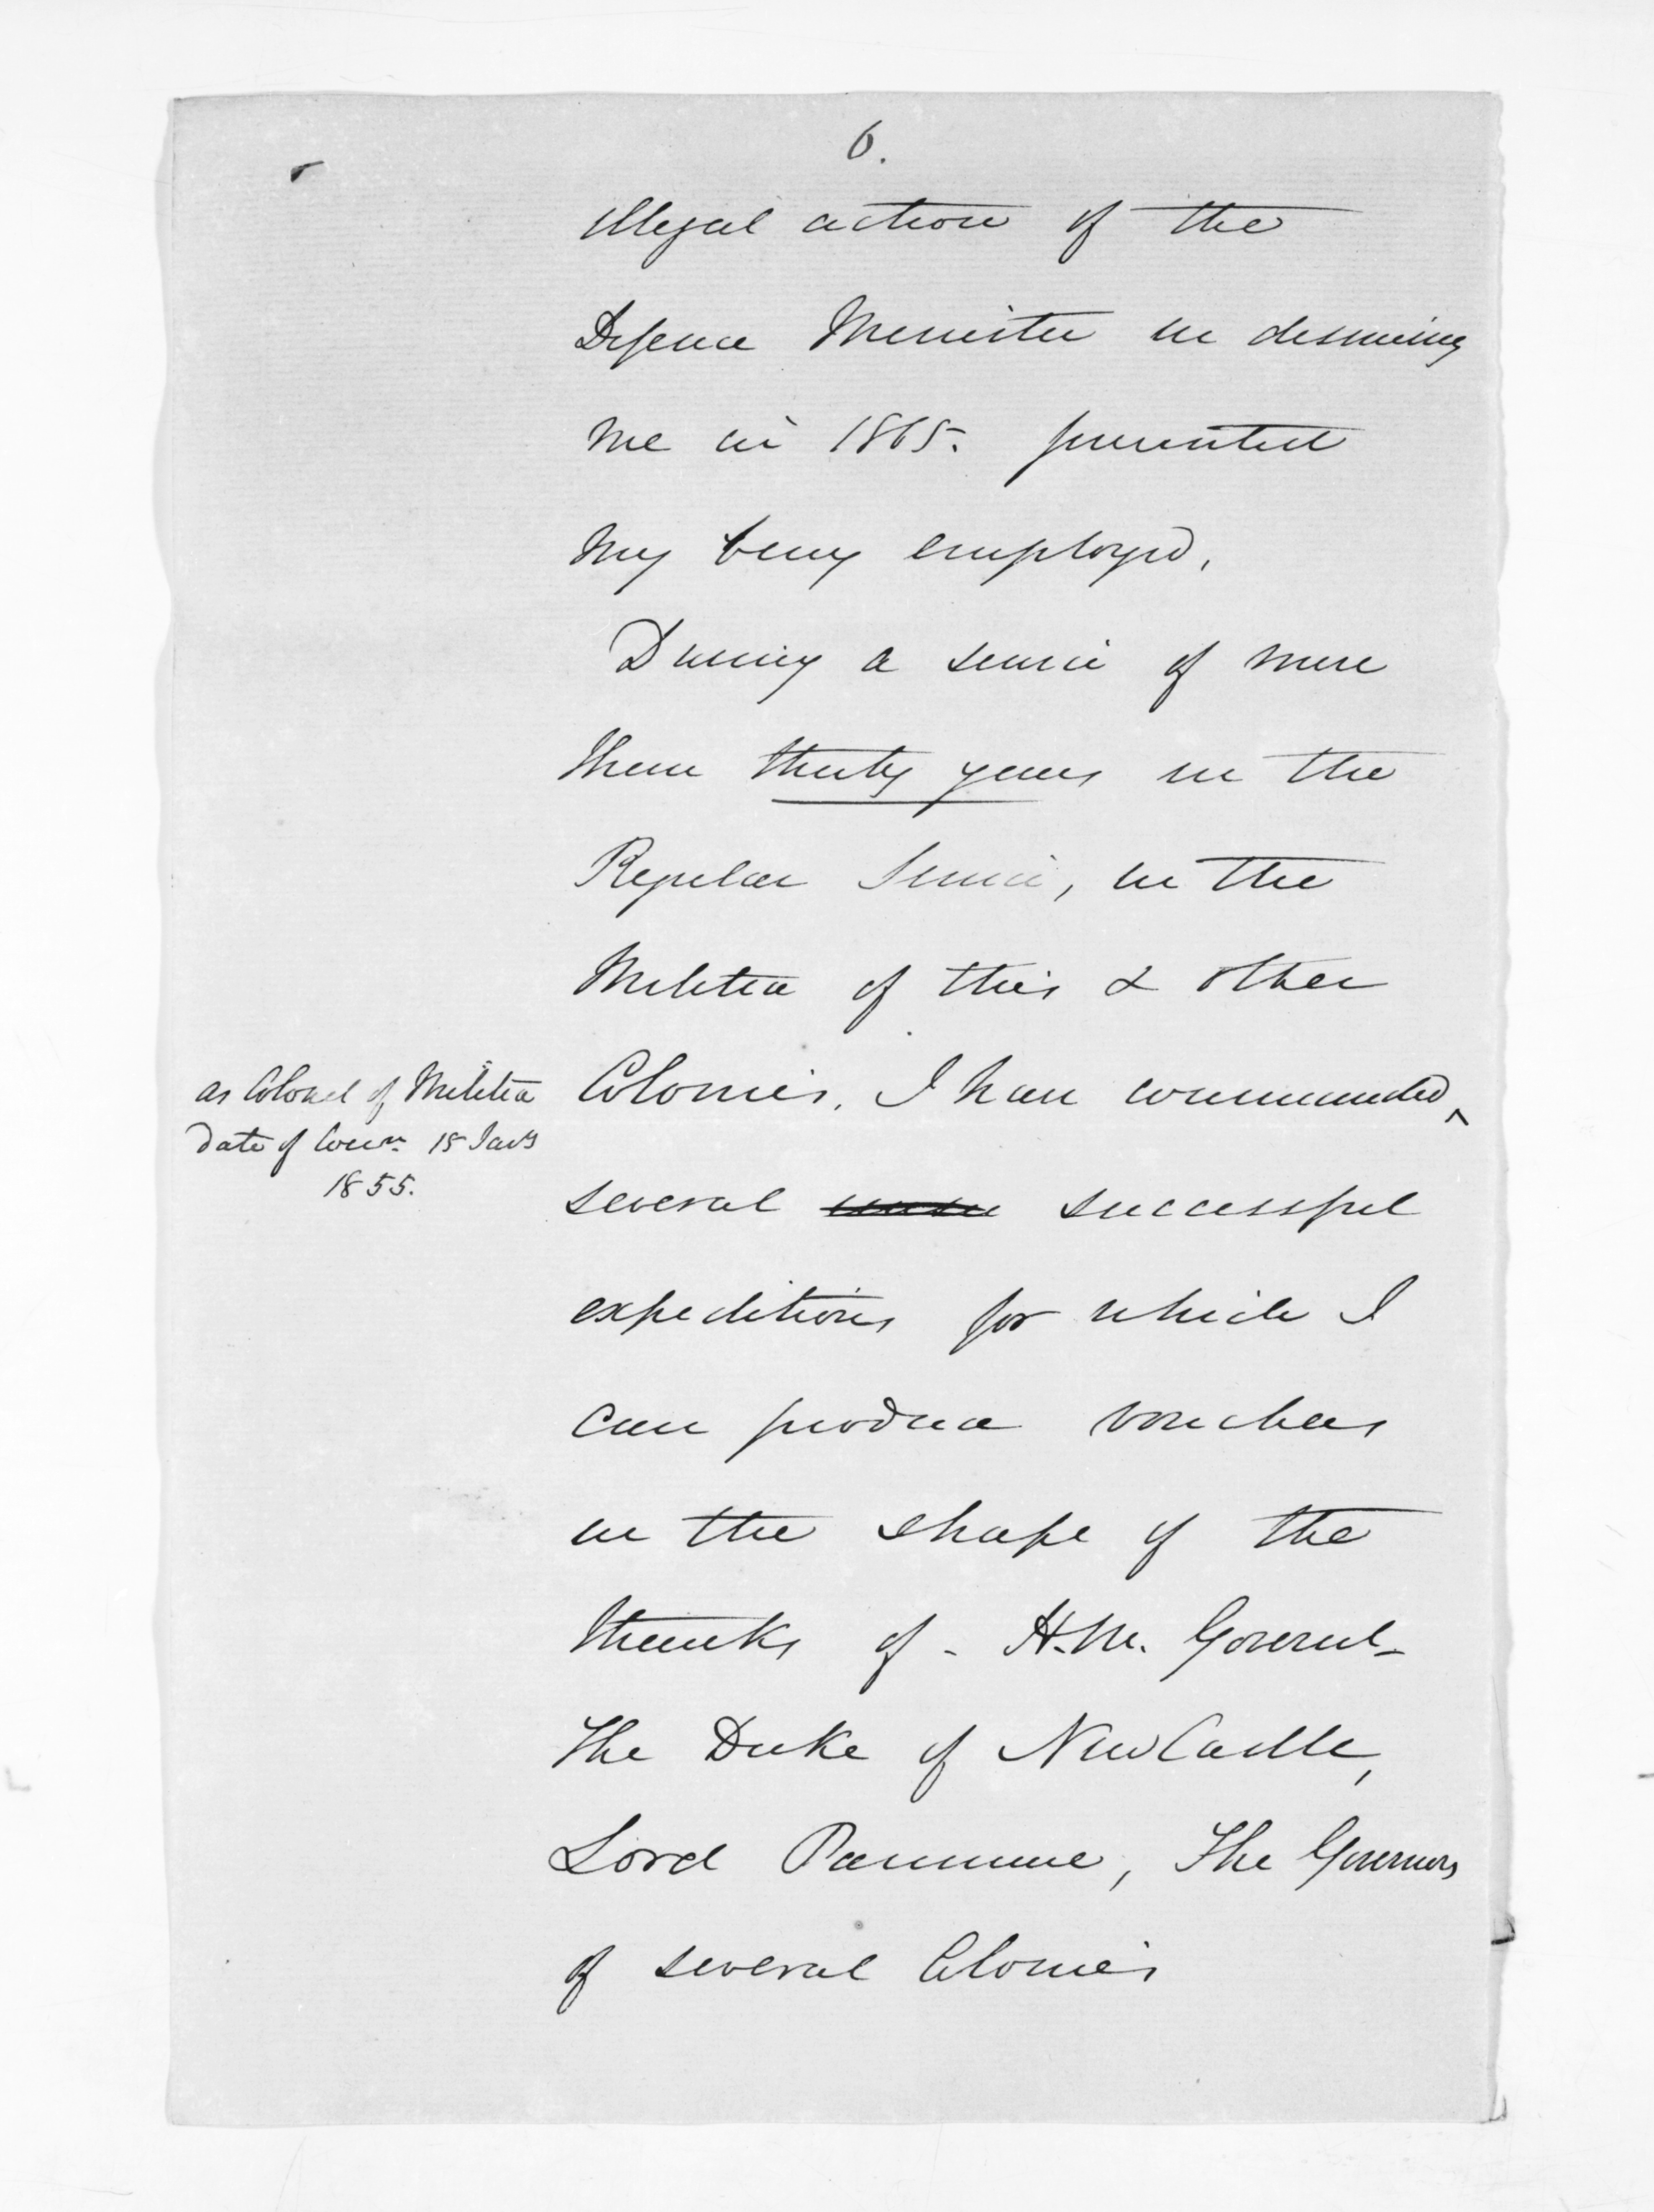 6.
illegal action of the
Defence Minister in dismissing
me in 1865. prevented
my being employed.
During a service of more
than thirty years in the
Regular Service, in the
Militia of this & other
Colonies. I have commanded ^
as Colonel of Militia
date of Comn. 15 Jany
1855.
several successful
expeditions for which I
can produce vouchers
in the shape of the
thanks of - H.M. Governt-
The Duke of NewCastle,
Lord Panmure, The Governors
of several Colonies